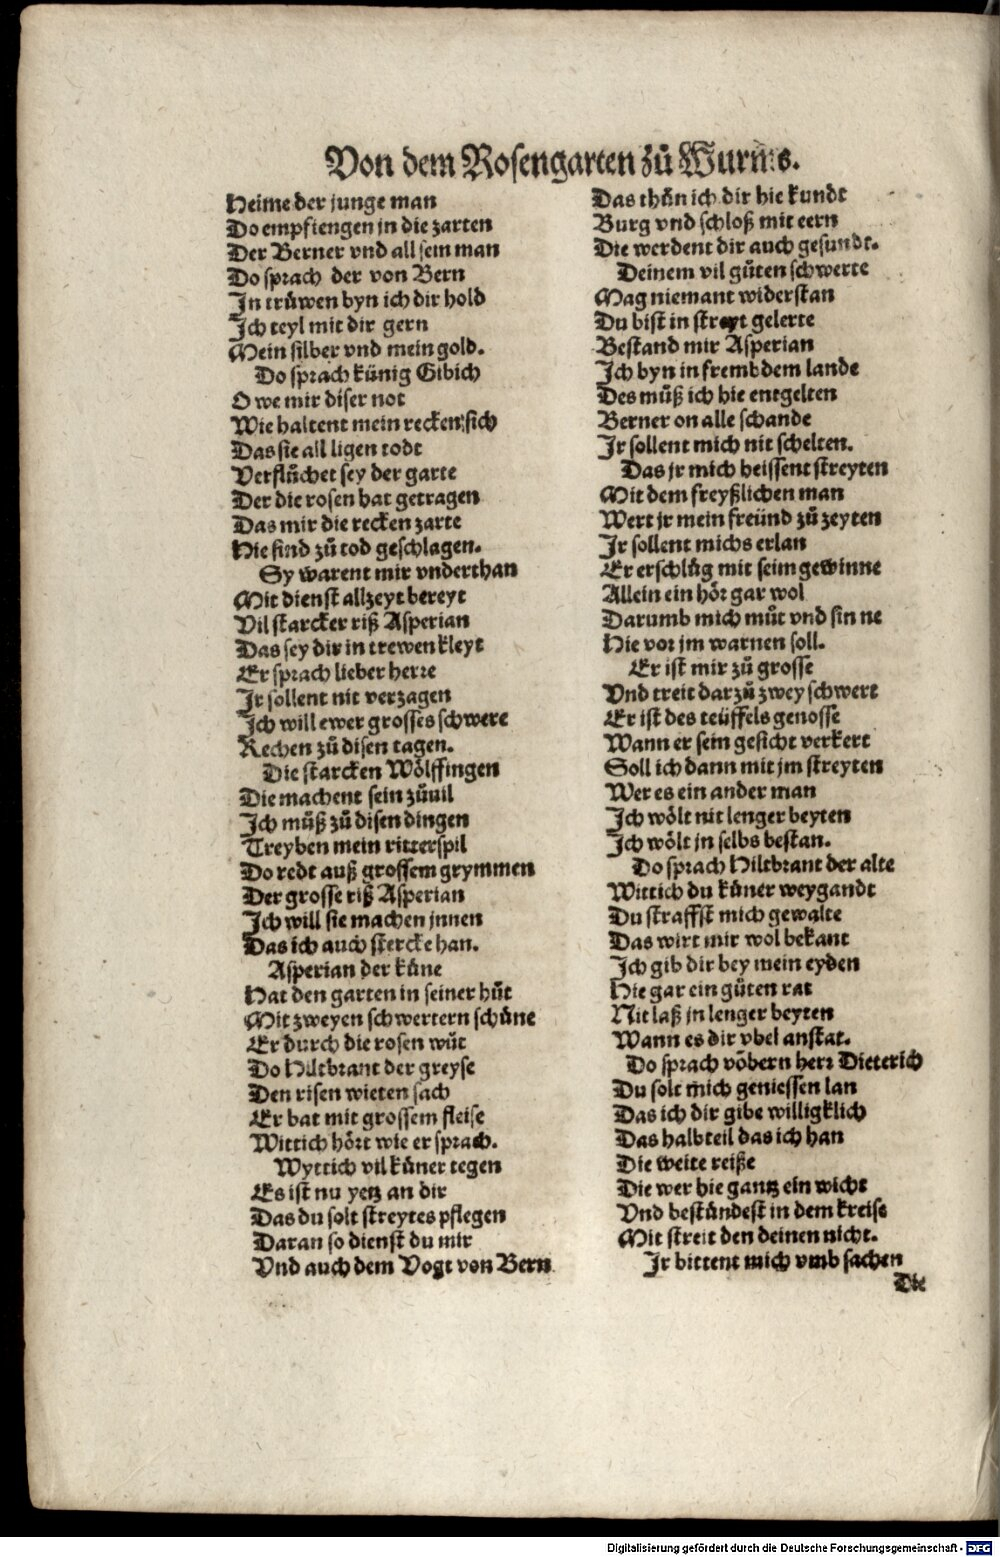 Von dem Rosengarten zů Wurms.
Heime der junge man
Do empfiengen jn die zarten
Der Berner vnd all sein man
Do sprach der von Bern
In trüwen byn ich dir hold
Ich teyl mit dir gern
Mein silber vnd mein gold.
Do sprach künig Gibich
O we mir diser not
Wie haltent mein recken sich
Das sie all ligen todt
Verflůchet sey der garte
Der die rosen hat getragen
Das mir die recken zarte
Hie sind zů tod geschlagen.
Sy warent mir vnderthan
Mit dienst allzeyt bereyt
Vil starcker riß Asperian
Das sey dir in trewen kleyt
Er sprach lieber herre
Ir sollent nit verzagen
Ich will ewer grosses schwere
Rechen zů disen tagen.
Die starcken Wölffingen
Die machent sein zůuil
Ich můß zů disen dingen
Treyben mein ritterspil
Do redt auß grossem grymmen
Der grosse riß Asperian
Ich will sie machen jnnen
Das ich auch stercke han.
Asperian der küne
Hat den garten in seiner hůt
Mit zweyen schwertern schüne
Er durch die rosen wůt
Do Hiltbrant der greyse
Den risen wieten sach
Er bat mit grossem fleise
Wittich hört wie er sprach.
Wyttich vil küner tegen
Es ist nu yetz an dir
Das du solt streytes pflegen
Daran so dienst du mir
Vnd auch dem Vogt von Bern
Das thůn ich dir hie kundt
Burg vnd schloß mit eern
Die werdent dir auch gesundt.
Deinem vil gůten schwerte
Mag niemant widerstan
Du bist in streyt gelerte
Bestand mir Asperian
Ich byn in frembdem lande
Des můß ich hie entgelten
Berner on alle schande
Ir sollent mich nit schelten.
Das jr mich heissent streyten
Mit dem freyßlichen man
Wert jr mein freünd zů zeyten
Ir sollent michs erlan
Er erschlůg mit seim gewinne
Allein ein hör gar wol
Darumb mich můt vnd sin ne
Hie vor jm warnen soll.
Er ist mir zů grosse
Vnd treit darzů zwey schwert
Er ist des teüffels genosse
Wann er sein gesicht verkert
Soll ich dann mit jm streyten
Wer es ein ander man
Ich wölt nit lenger beyten
Ich wölt jn selbs bestan.
Do sprach Hiltbrant der alte
Wittich du küner weygandt
Du straffst mich gewalte
Das wirt mir wol bekant
Ich gib dir bey mein eyden
Hie gar ein gůten rat
Nit laß jn lenger beyten
Wann es dir vbel anstat.
Do sprach võ bern herr Dieterich
Du solt mich geniessen lan
Das ich dir gibe willigklich
Das halbteil das ich han
Die weite reiße
Die wer hie gantz ein wicht
Vnd beständest in dem kreise
Mit streit den deinen nicht.
Ir bittent mich vmb sachen
Die
Digitalisierung gefördert durch die Deutsche Forschungsgemeinschaft - DFG